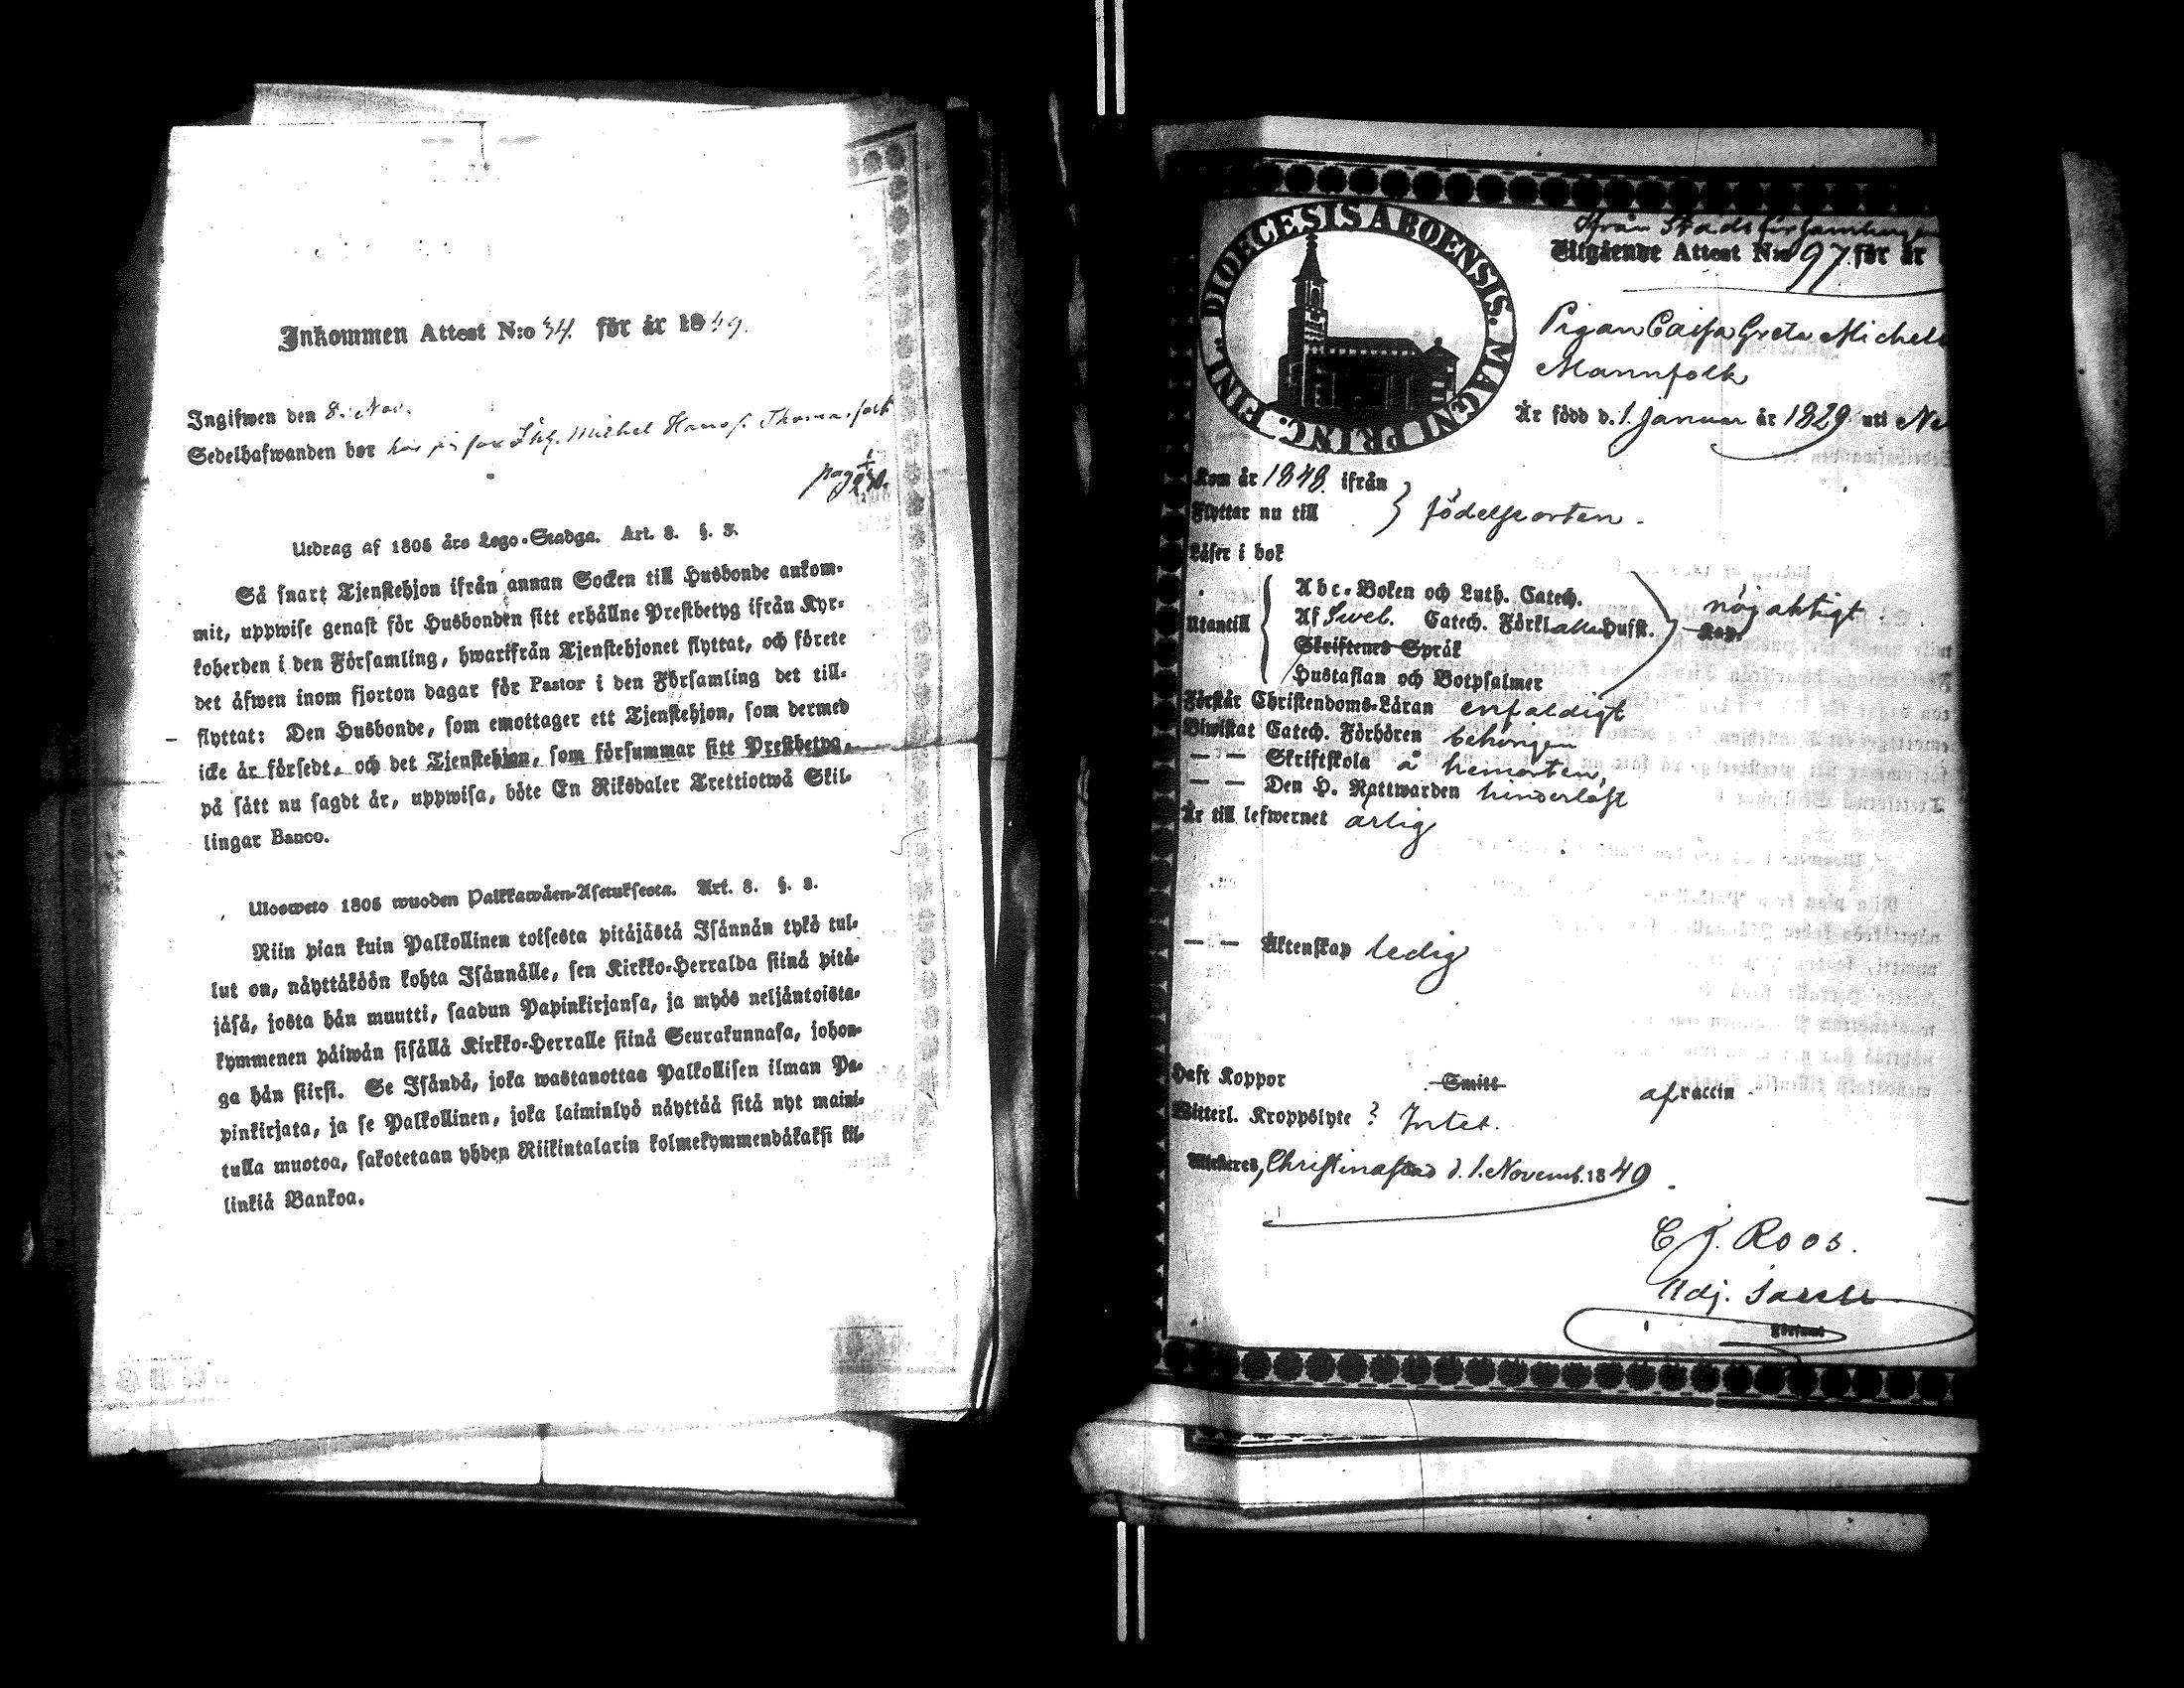 Inkommen Attest N:o 54. för år 1849.
Ingifwen den 8. Nov.
Sedelhafwanden bor hos Michel Hans s. Thomasfolk
pag
Utdrag af 1805 års Lego-Stadga. Art. 8. §. 3.
Så snart Tjenstehjon ifrån annan Socken till Husbonde ankom-
mit, uppwise genast för Husbonden sitt erhållne Prestbetyg ifrån Kyr-
koherden i den Församling, hwarifrån Tjenstehjonet flyttat, och förete
det äfwen inom fjorton dagar för Pastor i den Församling det till-
flyttat: Den Husbonde, som emottager ett Tjenstehjon, som dermed
icke är försedt, och det Tjenstehjon, som försummar sitt Prestbetyg,
på sätt nu sagdt är, uppwisa, böte En Riksdaler Trettiotwå Skil-
lingar Banco.
Ulosweto 1805 wuoden Palkkawäen-Asetuksesta. Art. 8. §. 3.
Niin pian kuin Palkollinen toisesta pitäjästä Isännän tykö tul-
lut on, näyttäköön kohta Isännälle, sen Kirkko-Herralda siinä pitä-
jäsä, josta hän muutti, saadun Papinkirjansa, ja myös neljäntoista-
kymmenen päiwän sisällä Kirkko-Herralle siinä Seurakunnasa, johon-
ga hän siirsi. Se Isändä, joka wastanottaa Palkollisen ilman Pa-
pinkirjata, ja se Palkollinen, joka laiminlyö näyttää sitä nyt maini-
tulla muotoa, sakotetaan yhden Riikintalarin kolmekymmendäkaksi kil-
linkiä Bankoa.
DIOECESIS ABOENSIS. MAGNI PRINC. FINL.
Ifrån Stads församlingen
Utgående Attest N:o 97 för år
Pigan Caisa Greta Michels
Mannfolk
Är född d. 1. Januar år 1829 uti Ne
Kom år 1848 ifrån
Flyttar nu till } födelseorten.
Läser i bok
Abc-Boken och Luth. Catech.
Utantill Af Sveb. Catech. Förkl. Hufst. nöjaktigt
Kap.
Skriftenes Språk
Hustaflan och Botpsalmer
Förstår Christendoms-Läran enfaldigt
Biwistat Catech. Förhören behörigen
— — Skriftskola å hemorten,
— — Den H. Nattwarden hinderlöst
Är till lefwernet ärlig
— — Äktenskap ledig
Haft Koppor Smitt af vaccin.
Witterl. Kroppslyte? Intet.
Christinastad d. 1. Novemb. 1849.
C J. Roos.
Adj. Sacell.